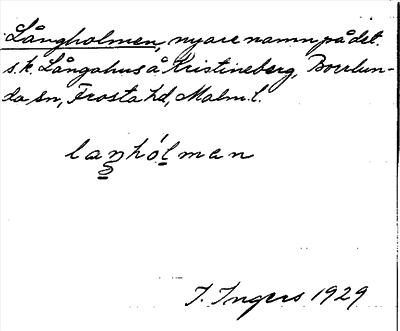 Långholmen, nyare namn på det
s.k. Långahus å Kristineberg, Borrlun-
da sn, Frosta hd, Malm.l.
laŋhólman
I. Ingers 1929